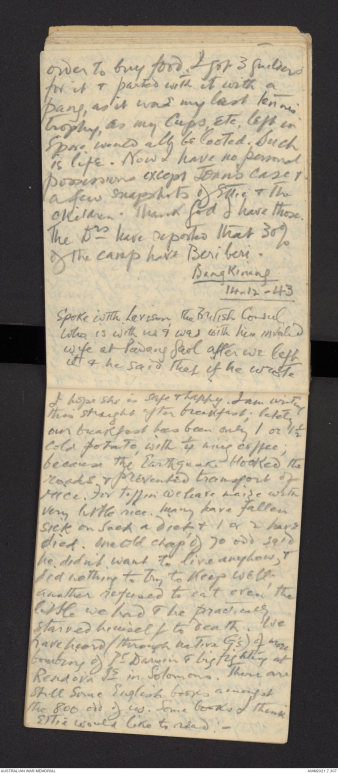 order to buy food. I got 3 guilders
for it & parted with it with a
pang, as it was my last tennis
trophy, as my Cups, etc left in
Spore would all be looted. Such
is life. Now I have no personal
possessions except case &
a few snapshots of Ettie & the
children. Thank God I have those.
The Drs have reported that 30%
of the camp have Beri beri.
14-12-43
Spoke with Levison the British Consul
who is with us & was with his invalid
wife at Padang Gaol after we left
it & he said that if he wrote
I hope she is safe & happy. I am writing
this straight after breakfast. Lately
our breakfast has been only 1 or 1½
cold potato, with coffee,
because the Earthquake blocked the
roads, & prevented transport of
rice. For Tiffin we have maize with
very little rice. Many have fallen
sick on such a diet & 1 or 2 have
died. One old chap of 70 odd said
he didn't want to live anyhow, &
did nothing to try to keep well.
Another refused to eat even the
little we had & he practically
starved himself to death. We
have heard (through native Gs) of more
bombing of Pt Darwin & big fighting at
Rendova Is in Solomons. There are
still some English books amongst
the 800 odd of us. Some books I think
Ettie would like to read:-
AUSTRALIAN WAR MEMORIAL